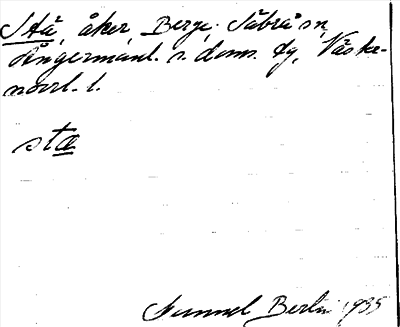 Stä, åker, Berge, Säbrå sn,
Ångermanl. s. doms. dg, Väster-
norrl. l.
stæ
Gunnel Berlin 1935